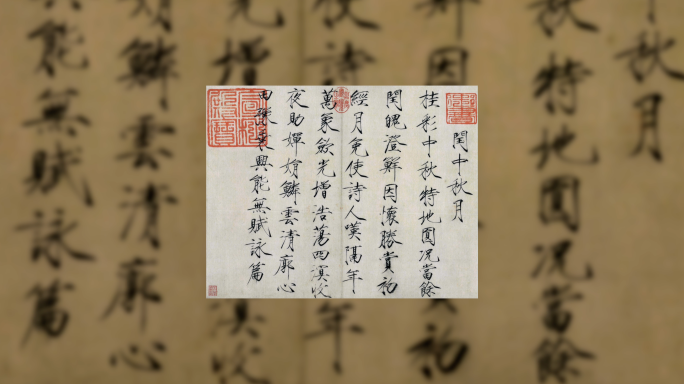 閏中秋月
桂彩中秋特地圓况當餘
閏魄澄鮮因懷勝賞初
經月免使詩人嘆隔年
萬象斂光增浩蕩四溟收
夜助嬋娟鱗雲清廓心
田 興能無賦詠篇